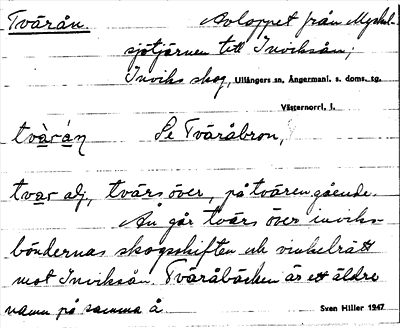 Tvärån. Avloppet från Myckel-
sjötjärnen till Inviksån;
Inviks skog, Ullångers sn, Ångermanl. s. doms. sg.
Västernorrl. l.
tvàrán Se Tväråbron,
tvar adj., tvärs över, på tvären gående.
Ån går tvärs över inviks-
böndernas skogsskiften och vinkelrätt
mot Inviksån. Tväråbäcken är ett äldre
namn på samma å. Sven Hiller 1947